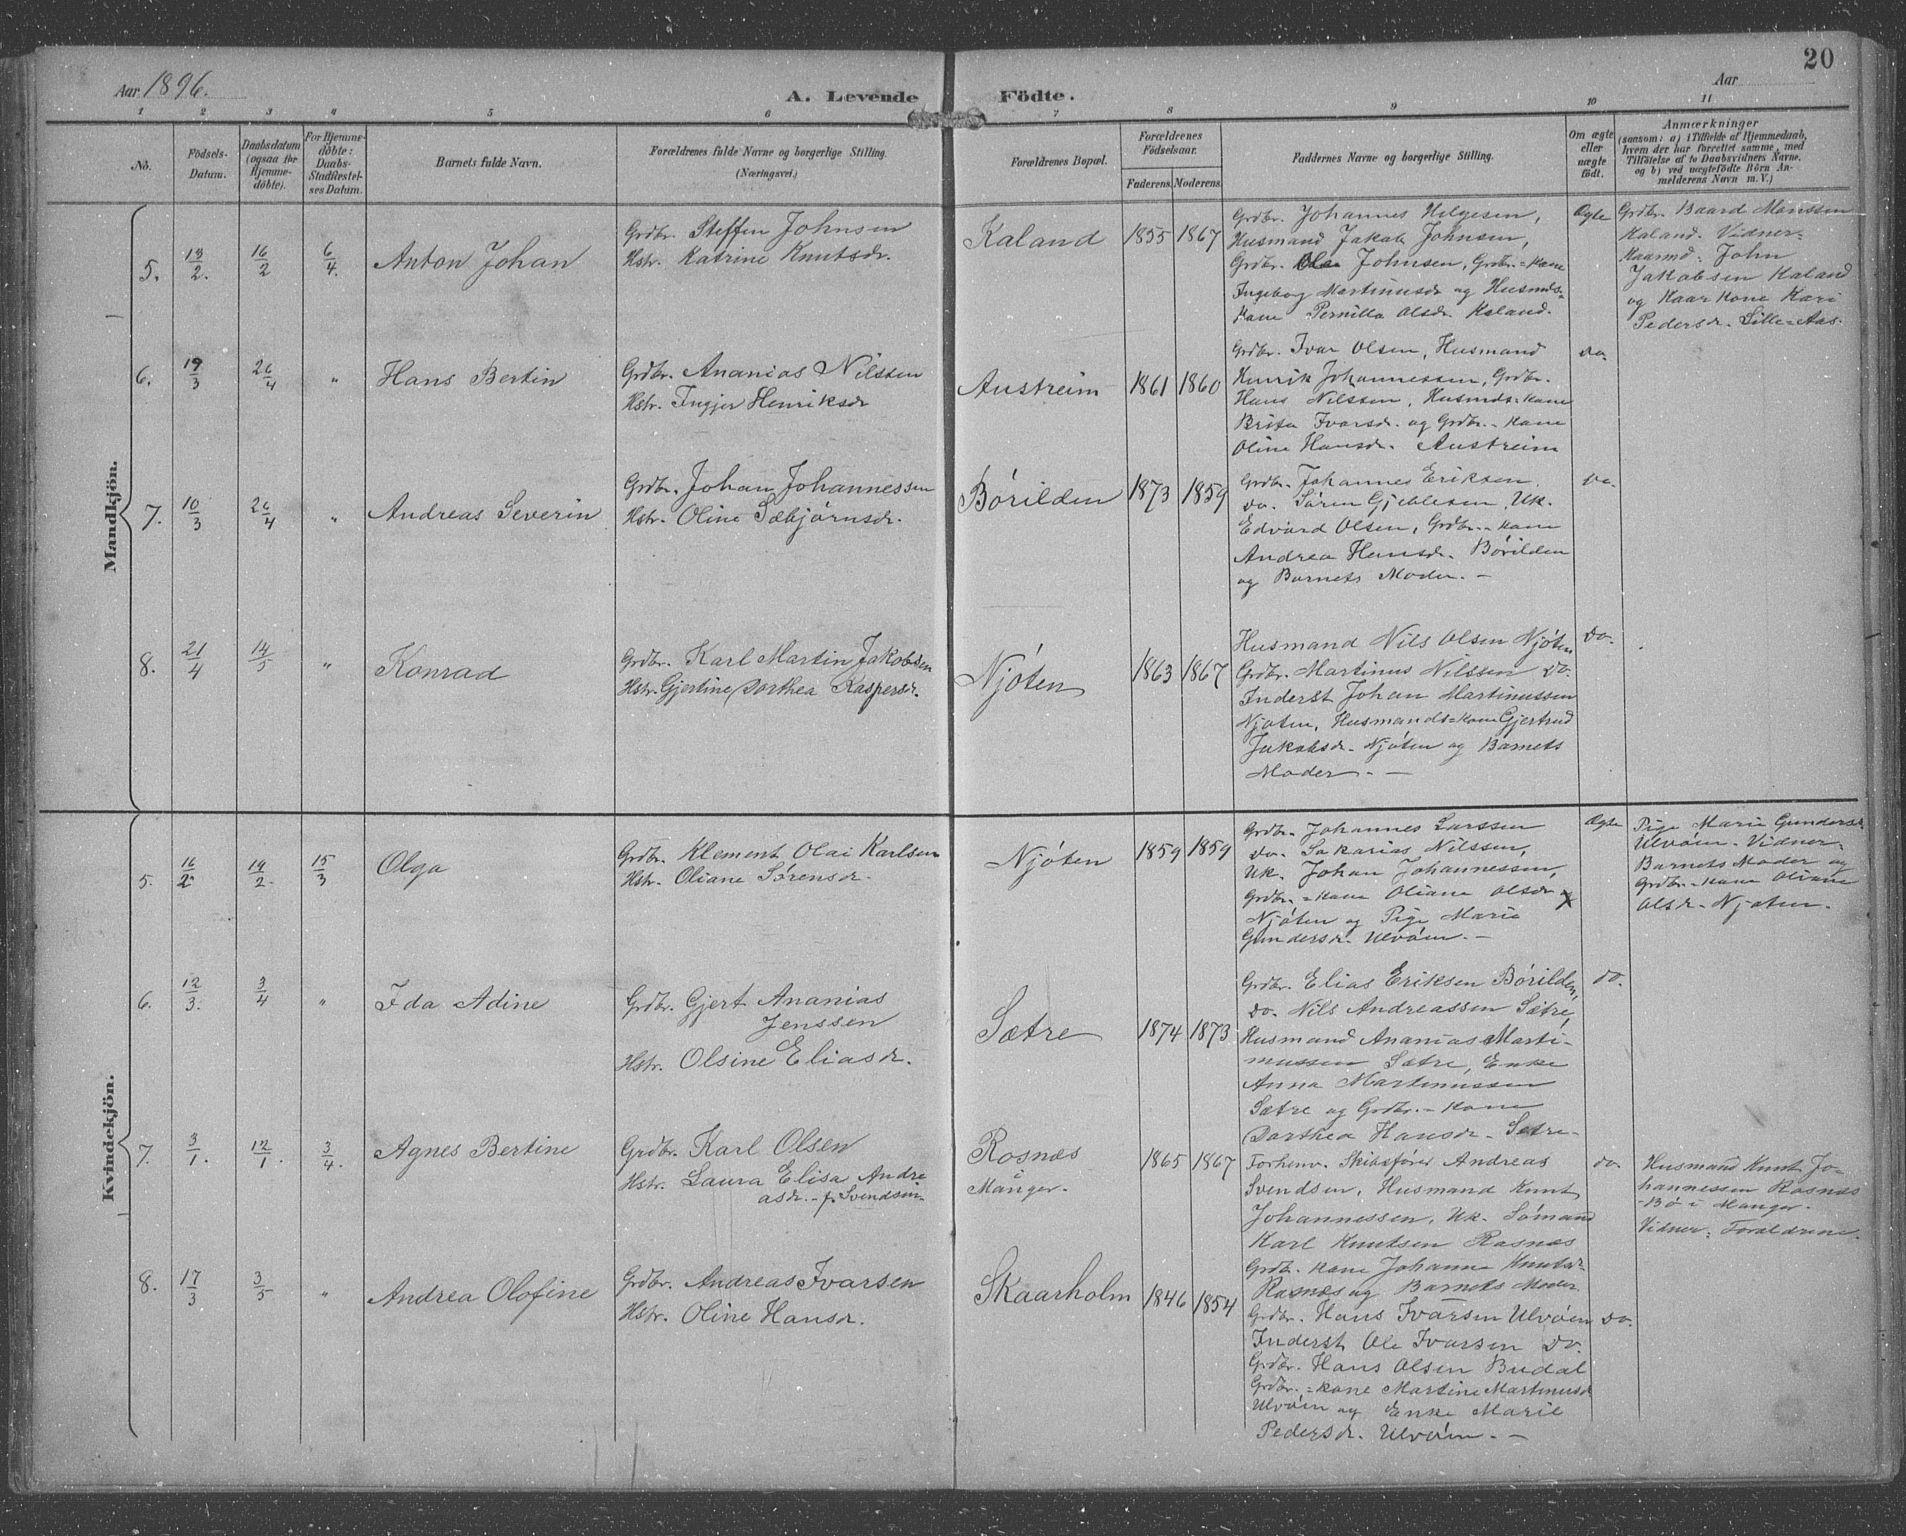 20
Aar 1896.
Aar
A. Levende Födte.
1 2 3 4 5 6 7 8 9 10 11
No.
Födsels-Datum.
Daabsdatum (ogsaa for Hjemmedöbte).
For Hjemmedöbte: Daabs-Stadfæstelses Datum.
Barnets fulde Navn.
Forældrenes fulde Navne og borgerlige Stilling. (Næringsvei.)
Forældrenes Bopæl.
Forældrenes Födselsaar.
Faderens. Moderens.
Faddernes Navne og borgerlige Stilling.
Om ægte eller uægte födt.
Anmærkninger
(saasom: a) i Tilfælde af Hjemmedaab,
hvem der har forrettet samme, med
Tilföielse af to Daabsvidners Navne.
og b) ved uægtefödte Börn An-
melderens Navn m. V.)
Mandkjön.
5. 13/2. 16/2 6/4. Anton Johan
Grdbr. Steffen Johnsen
Hstr. Katrine Knutsdr.
Kaland 1855 1867
Grdbr. Johannes Helgesen,
Husmand Jakob Johnsen,
Grdbr. Ola Johnsen, Grdbr.-kone
Ingeborg Martinusdr og Husmds-
kone Pernilla Olsdr. Kaland.
Ægte
Grdbr. Baard Monssen
Kaland. Vidner-
Kaarmd. John
Jakobsen Kaland
og Kaarkone Kari
Pedersdr. Lille-Aas.
6. 19/3 26/4 " Hans Bertin
Grdbr. Ananias Nilssen
Hstr. Ingjer Henriksdr
Austreim 1861 1860
Grdbr. Ivar Olsen, Husmand
Henrik Johannessen, Grdbr.
Hans Nilssen, Husmds-kone
Brita Ivarsdr. og Grdbr.-kone
Oline Hansdr. Austreim
do.
7. 10/3 26/4 " Andreas Severin
Grdbr. Johan Johannessen
Hstr. Oline Sæbjørnsdr.
Børilden 1873 1859
Grdbr. Johannes Eriksen.
do. Søren Gjeblesen, Uk.
Edvard Olsen, Grdbr.-kone
Andrea Hansdr. Børilden
og Barnets Moder. —
do.
8. 21/4 14/5 " Konrad
Grdbr. Karl Martin Jakobsen
Hstr. Gjertine Dorthea Kaspersdr.
Njøten 1863 1867
Husmand Nils Olsen Njøten
Grdbr. Martinus Nilssen do.
Inderst Johan Martinussen
Njøten, Husmands-kone Gjertrud
Jakobsdr. Njøten og Barnets
Moder. —
do.
Kvindekjön.
5. 16/2 19/2. 15/3 Olga
Grdbr. Klement Olai Karlsen
Hstr. Oliane Sørensdr.
Njøten 1859 1859
Grdbr. Johannes Larssen
do. Sakarias Nilssen,
Uk. Johan Johannessen,
Grdbr.-kone Oliane Olsdr
Njøten og Pige Marie
Gundersdr. Ulvøen. —
Ægte
Pige Marie Gundersdr
Ulvøen. Vidner-
Barnets Moder og
Grdbr.-kone Oliane
Olsdr. Njøten.
6. 12/3. 3/4 " Ida Adine
Grdbr. Gjert Ananias
Jenssen
Hstr. Olsine Eliasdr.
Sætre 1874 1873
Grdbr. Elias Eriksen Børilden,
do. Nils Andreassen Sætre,
Husmand Ananias Marti-
nussen Sætre, Enke
Anna Martinussen
Sætre og Grdbr.-kone
Dorthea Hansdr. Sætre.
do.
7. 3/1. 12/1. 3/4. Agnes Bertine
Grdbr. Karl Olsen
Hstr. Laura Elisa Andre
asdr. - f. Svendsen
Rosnæs
i
Manger.
1865 1867
Forhenv. Skibsfører Andreas
Svendsen, Husmand Knut
Johannessen, Uk. Sømand
Karl Knutsen Rosnæs
Grdbr. kone Johanna Knutsdr
Rosnæs og Barnets Moder
do.
Husmand Knut Jo-
hannessen Rosnæs
-Bø i Manger.
Vidner: Forældrene
8. 17/3 3/5 " Andrea Olofine
Grdbr. Andreas Ivarsen
Hstr. Oline Hansdr.
Skaarholm 1846 1854
Grdbr. Hans Ivarsen Ulvøen
Inderst Ole Ivarsen do.
Grdbr. Hans Olsen Budal
Grdbr.-kone Martine Martinusdr
Ulvøen og Enke Marie
Pedersdr. Ulvøen. —
do.